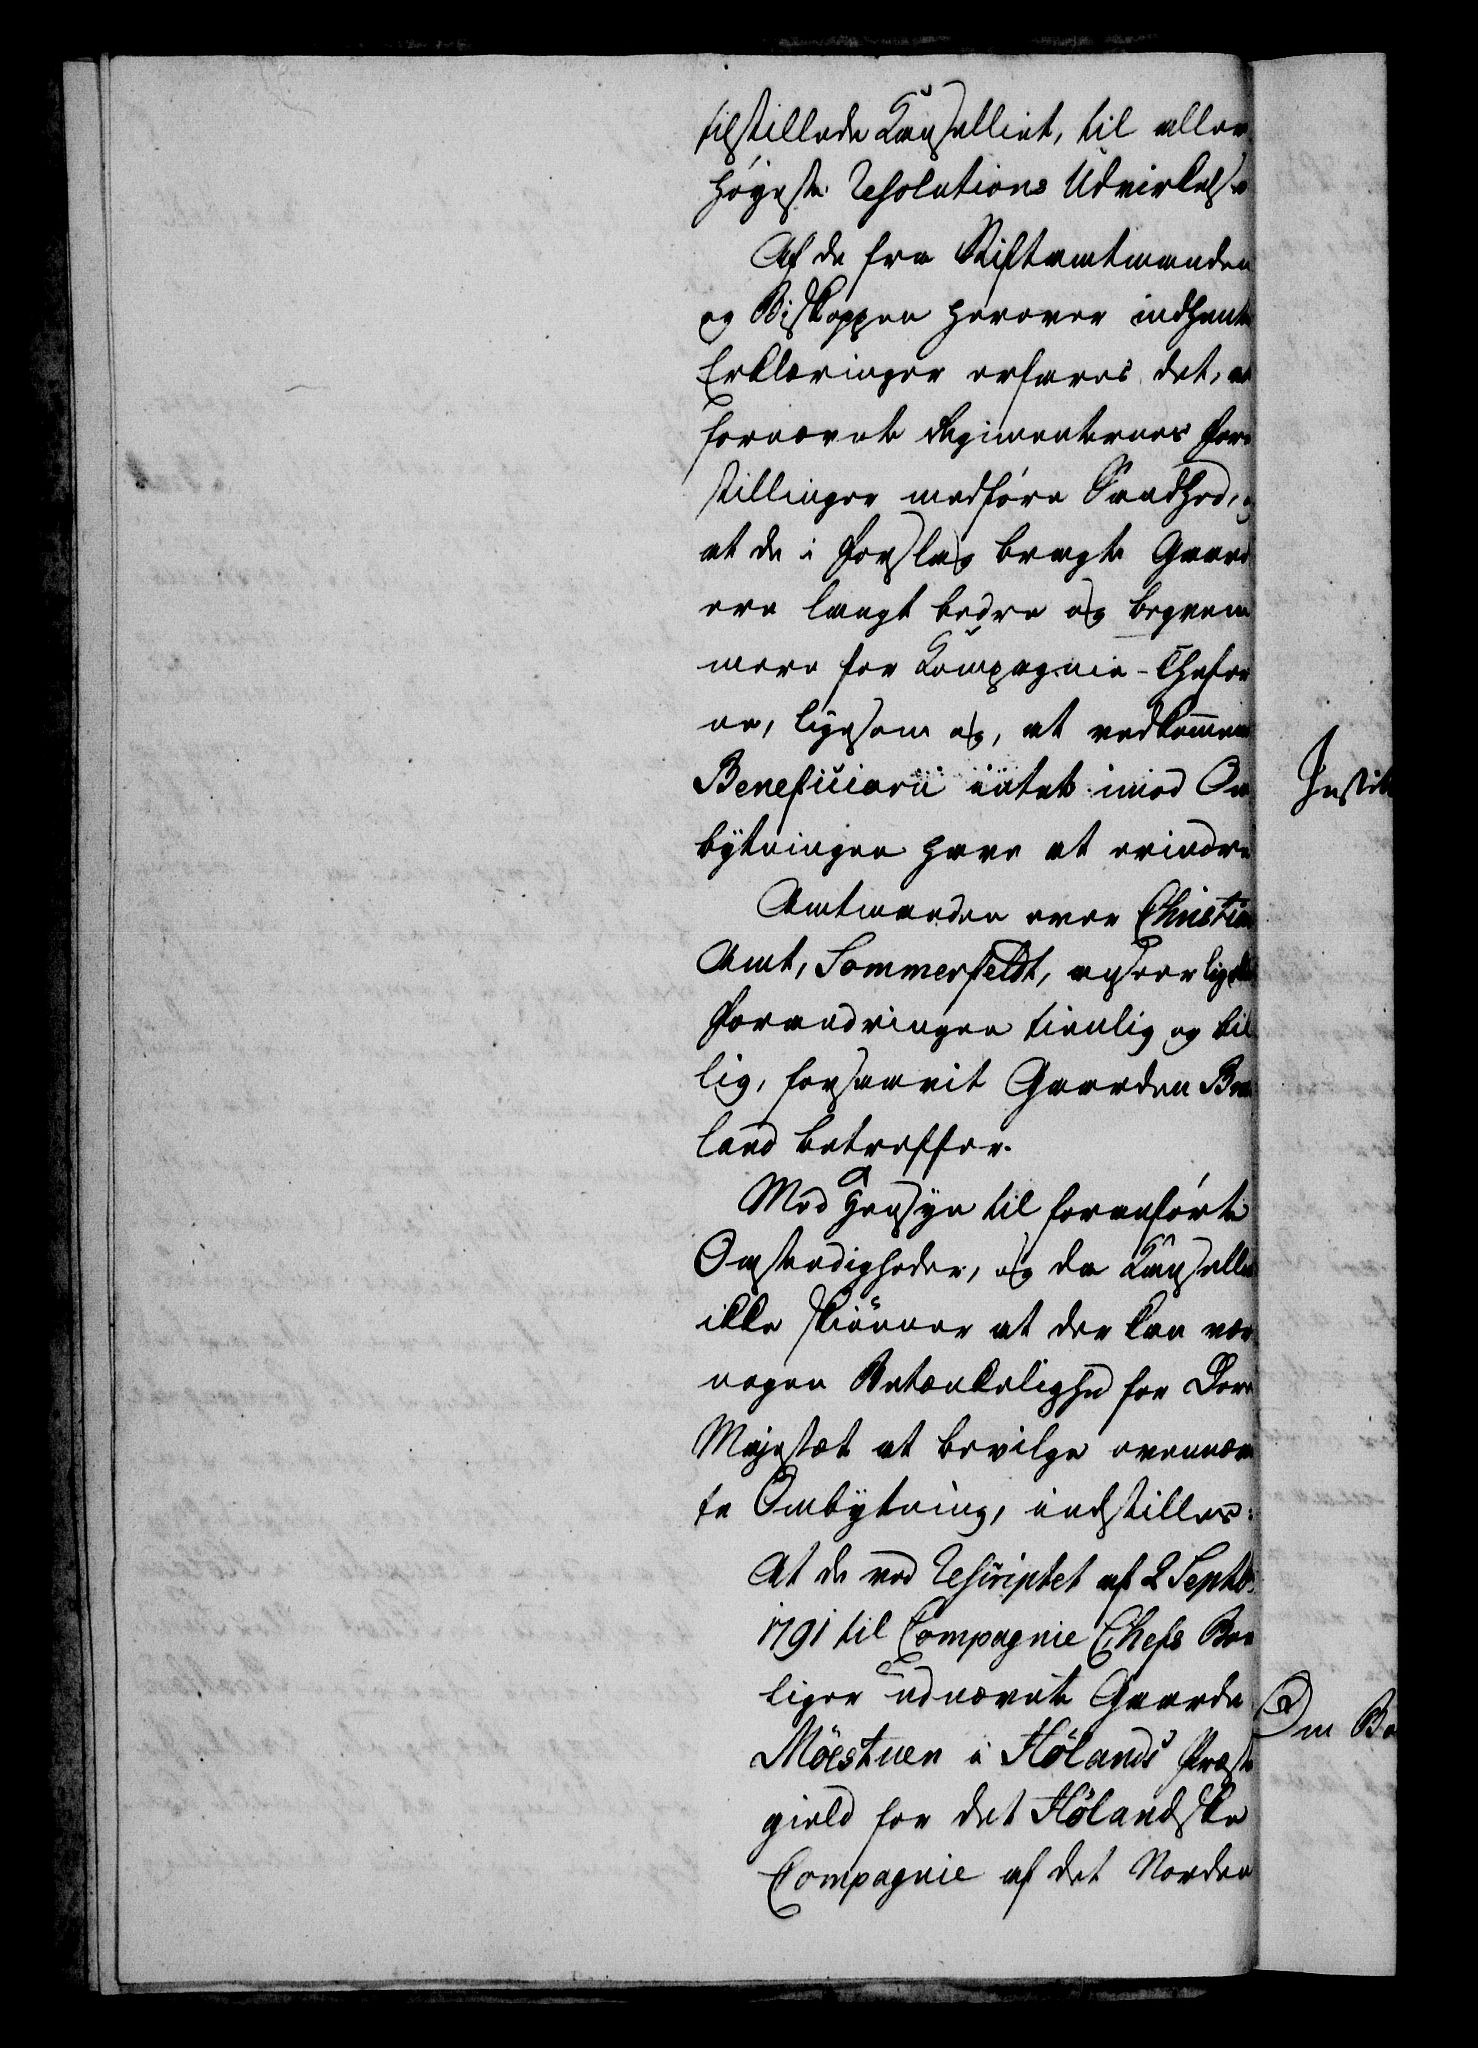 tilstillede Kanselliet, til aller
høyeste Resolutions Udvirkelse
Af de fra Stiftamtmanden
og Biskoppen herover indhente
Erklæringer erfares det, at
fornævnte Regimenternes Fore
stillinger medføre Sandhed, og
at de i Forslag bragte Gaard
ere langt bedre og beqvem
mere for Kompagnie-Chefer
ne, ligesom og, at vedkommen
Beneficiarii intet imod Om
bytningen have at erindre
Amtmanden over Christian
Amt, Sommerfeldt, anseer lige
Forandringen tienlig og bil
lig, forsaavit Gaarden
land betreffer.
Med Hensyn til foranførte
Omstændigheder, og da Kanselliet
ikke skiønner at der kan være
nogen Betænkelighed for Deres
Majestæt at bevilge ovennævn
te Ombytning, indstilles:
At de ved Rescriptet af 2 Septbr
1791 til Compagnie Chefs Boe
liger udnævnte Gaarde
Möestuen i Hölands Præste
gield for det Hölandske
Compagnie af det Norden
Instit
Om Be